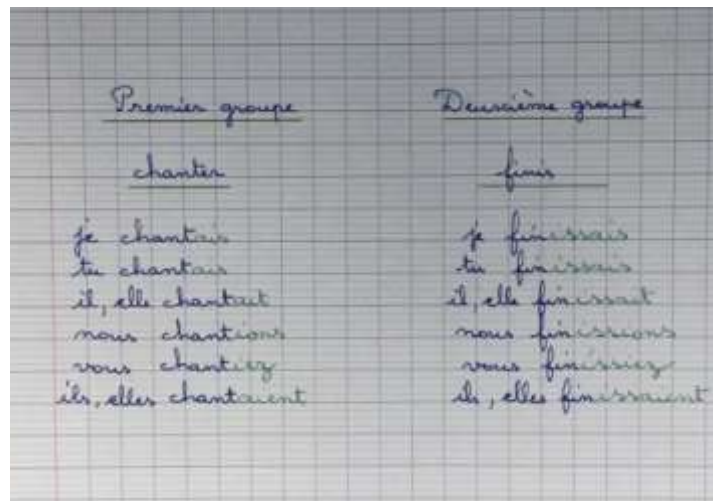 Premier groupe
chanter
je chantais
tu chantais
il, elle chantait
nous chantions
vous chantiez
ils, elles chantaient
Deuxième groupe
finir
je finissais
tu finissais
il, elle finissait
nous finissions
vous finissiez
ils, elles finissaient